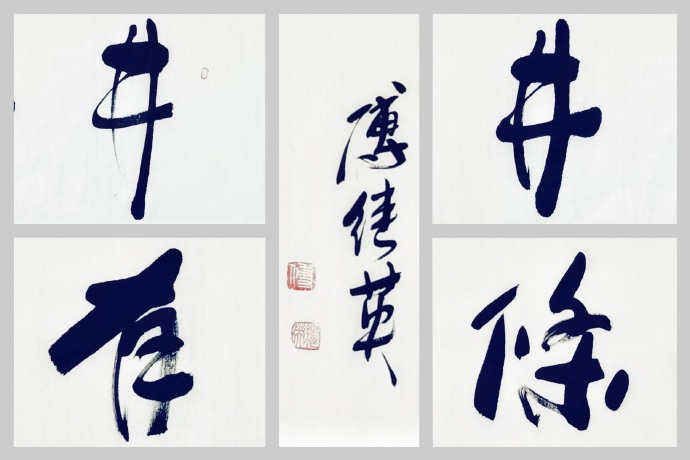 井
井
有
條
傅 英